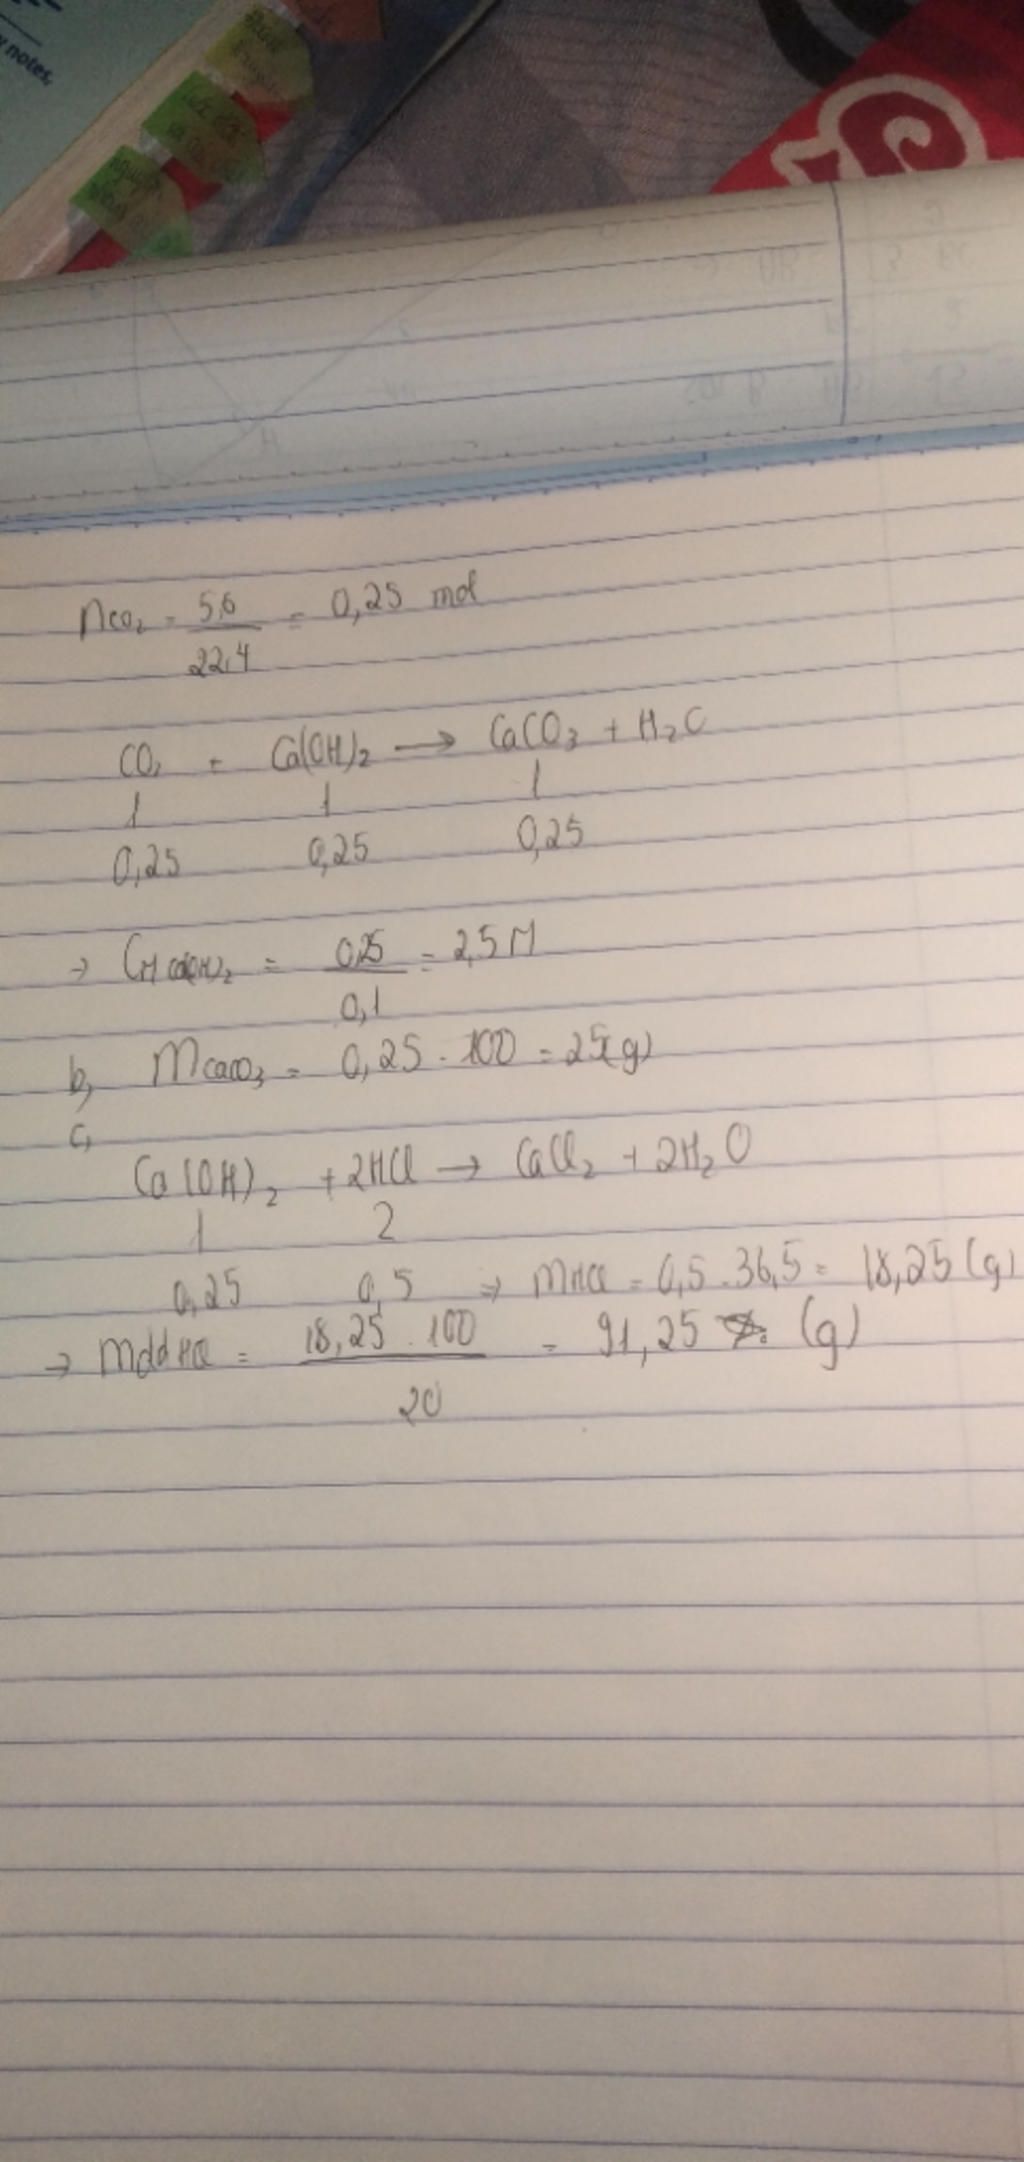 notes,
nCO₂ = 5,6 / 22,4 = 0,25 mol
CO₂ + Ca(OH)₂ → CaCO₃ + H₂O
1 1 1
0,25 0,25 0,25
→ CM Ca(OH)₂ = 0,25 / 0,1 = 2,5 M
b, mCaCO₃ = 0,25 . 100 = 25(g)
c,
Ca(OH)₂ + 2HCl → CaCl₂ + 2H₂O
1 2
0,25 0,5 → mHCl = 0,5 . 36,5 = 18,25 (g)
→ mddHCl = 18,25 . 100 / 20 = 91,25 (g)